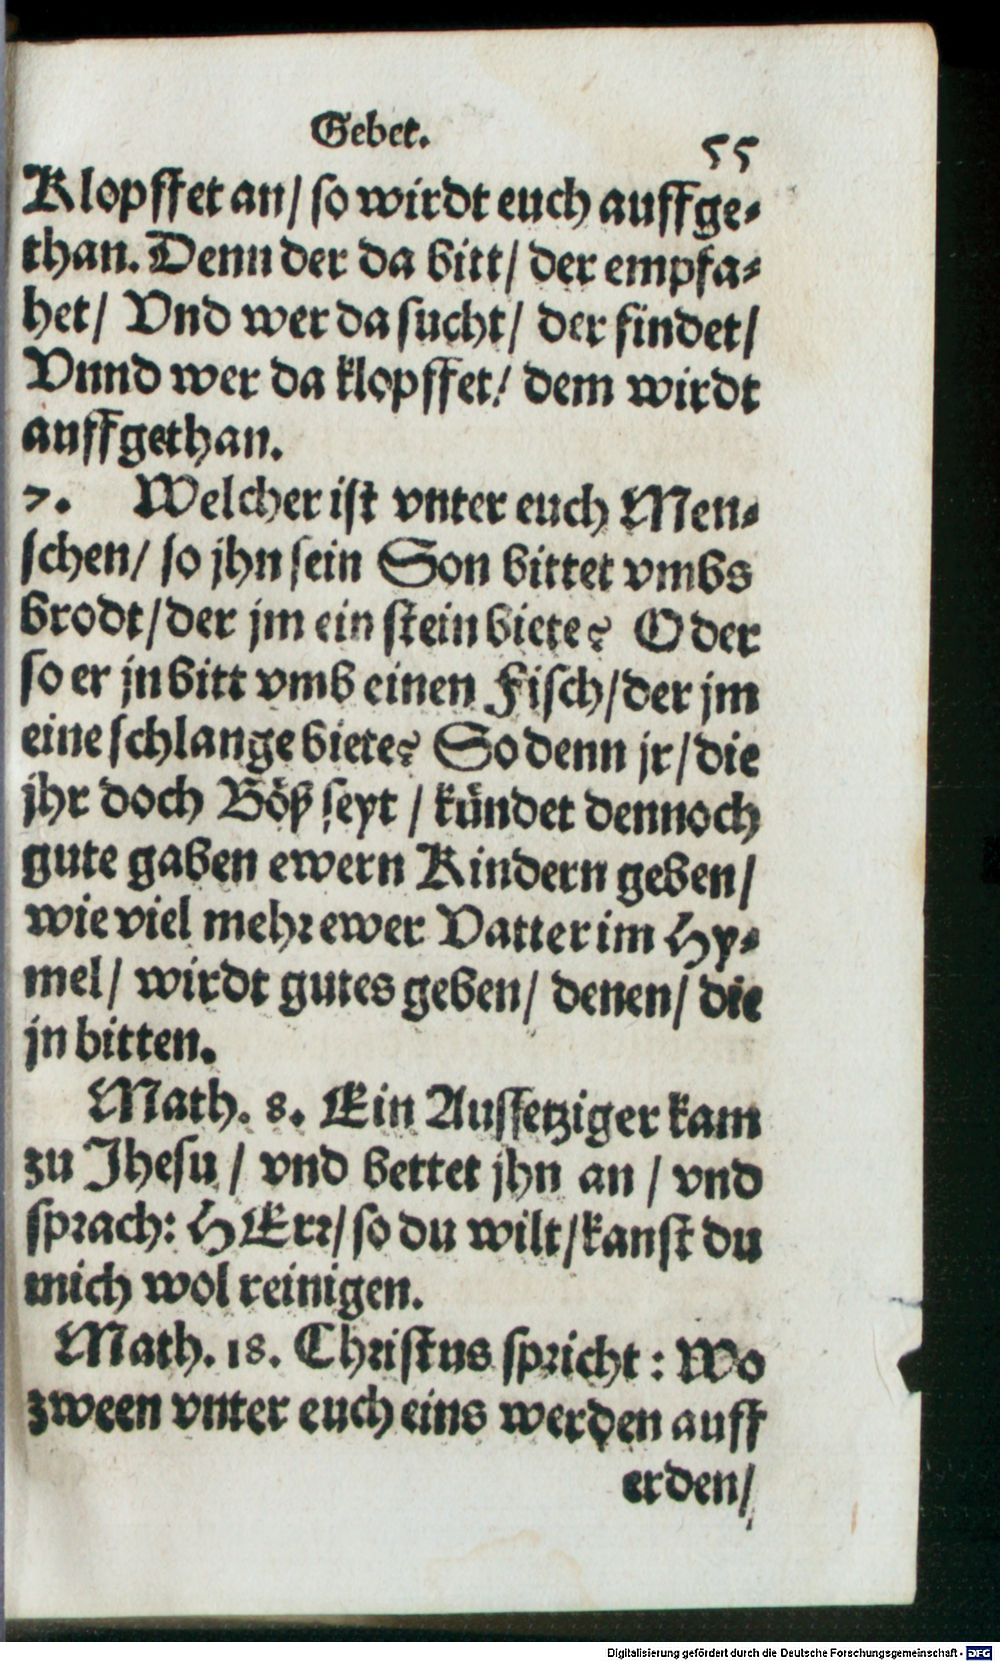 Gebet.
55
Klopffet an/ so wirdt euch auffge-
than. Denn der da bitt/ der empfa-
het/ Vnd wer da sucht/ der findet/
Vnnd wer da klopffet/ dem wirdt
auffgethan.
7. Welcher ist vnter euch Men-
schen/ so jhn sein Son bittet vmbs
brodt/ der jm ein stein biete? Oder
so er jn bitt vmb einen Fisch/ der jm
eine schlange biete? So denn jr/ die
jhr doch Böß seyt / kündet dennoch
gute gaben ewern Kindern geben/
wie viel mehr ewer Vatter im Hy-
mel/ wirdt gutes geben/ denen/ die
jn bitten.
Math. 8. Ein Aussetziger kam
zu Jhesu / vnd bettet jhn an / vnd
sprach: HErr/ so du wilt/ kanst du
mich wol reinigen.
Math. 18. Christus spricht: Wo
zween vnter euch eins werden auff
erden/
Digitalisierung gefördert durch die Deutsche Forschungsgemeinschaft - DFG